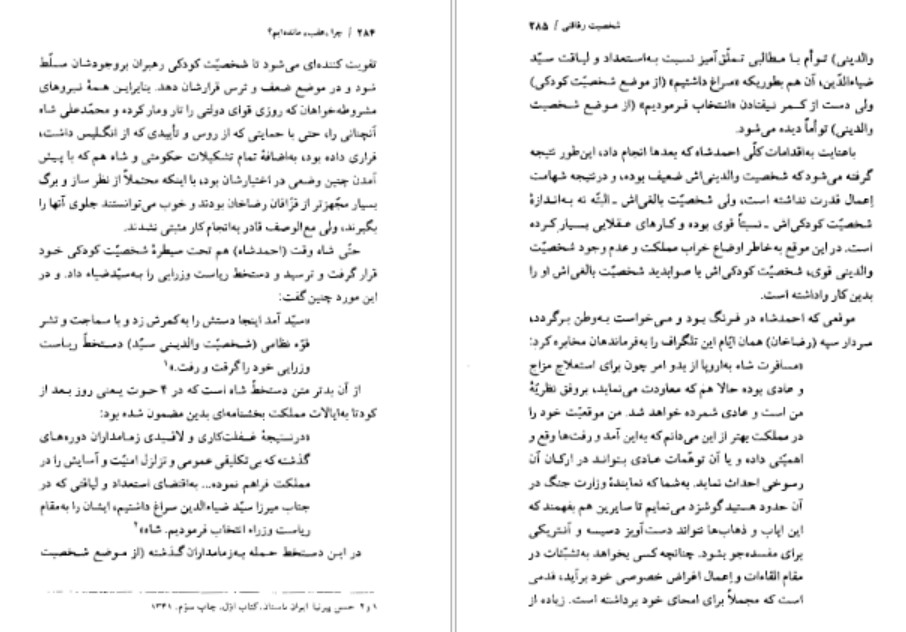 ۲۸۴ / چرا «عقب» مانده‌ایم؟
تقویت کننده‌ای می‌شود تا شخصیّت کودکی رهبران بروجودشان مسلّط
شود و در موضع ضعف و ترس قرارشان دهد. بنابراین همهٔ نیروهای
مشروطه‌خواهان که روزی قوای دولتی را تار ومار کرده و محمّدعلی شاه
آنچنانی را، حتی با حمایتی که از روس و تأییدی که از انگلیس داشت،
فراری داده بود، به‌اضافهٔ تمام تشکیلات حکومتی و شاه هم که با پیش
آمدن چنین وضعی در اختیارشان بود، با اینکه محتملاً از نظر ساز و برگ
بسیار مجّهزتر از قزّاقان رضاخان بودند و خوب می‌توانستند جلوی آنها را
بگیرند، ولی مع‌الوصف قادر به‌انجام کار مثبتی نشدند.
حتّی شاه وقت (احمدشاه) هم تحت سیطرهٔ شخصیّت کودکی خود
قرار گرفت و ترسید و دستخط ریاست وزرایی را به‌سیّدضیاء داد. و در
این مورد چنین گفت:
«سیّد آمد اینجا دستش را به‌کمرش زد و با سماجت و تشر
قوّه نظامی (شخصیّت والدینی سیّد) دستخطّ ریاست
وزرایی خود را گرفت و رفت.»۱
از آن بدتر متن دستخطّ شاه است که در ۴ حوت یعنی روز بعد از
کودتا به‌ایالات مملکت بخشنامه‌ای بدین مضمون شده بود:
«درنتیجهٔ غفلت‌کاری و لاقیدی زمامداران دوره‌های
گذشته که بی‌تکلیفی عمومی و تزلزل امنیّت و آسایش را در
مملکت فراهم نموده... به‌اقتضای استعداد و لیاقتی که در
جناب میرزا سیّد ضیاءالدین سراغ داشتیم، ایشان را به‌مقام
ریاست وزراء انتخاب فرمودیم. شاه»۲
در این دستخط حمله به‌زمامداران گذشته (از موضع شخصیت
۱ و ۲ حسن پیرنیا ایران باستان، کتاب اوّل، چاپ سوّم، ۱۳۴۱
شخصیت رفاقتی / ۲۸۵
والدینی) توأم با مطالبی تملّق‌آمیز نسبت به‌استعداد و لیاقت سیّد
ضیاءالدّین، آن هم بطوریکه «سراغ داشتیم» (از موضع شخصیّت کودکی)
ولی دست از کمر نیفتادن «انتخاب فرمودیم» (از موضع شخصیت
والدینی) توأماً دیده می‌شود.
باعنایت به‌اقدامات کلّی احمدشاه که بعدها انجام داد، این‌طور نتیجه
گرفته می‌شود که شخصیت والدینی‌اش ضعیف بوده، و درنتیجه شهامت
إعمال قدرت نداشته است، ولی شخصیّت بالغی‌اش ـ البتّه نه به‌اندازهٔ
شخصیّت کودکی‌اش ـ نسبتاً قوی بوده و کارهای عقلایی بسیار کرده
است. در این موقع به‌خاطر اوضاع خراب مملکت و عدم وجود شخصیّت
والدینی قوی، شخصیّت کودکی‌اش با صوابدید شخصیّت بالغی‌اش او را
بدین کار واداشته است.
موقعی که احمدشاه در فرنگ بود و می‌خواست به‌وطن برگردد،
سردار سپه (رضاخان) همان ایّام این تلگراف را به‌فرماندهان مخابره کرد:
«مسافرت شاه به‌اروپا از بدو امر چون برای استعلاج مزاج
و عادی بوده حالا هم که معاودت می‌نماید، بروفق نظریّهٔ
من است و عادی شمرده خواهد شد. من موقعیّت خود را
در مملکت بهتر از این می‌دانم که به‌این آمد و رفت‌ها وقع و
اهمیّتی داده و یا آن توهّمات عادی بتواند در ارکان آن
رسوخی احداث نماید. به‌شما که نمایندهٔ وزارت جنگ در
آن حدود هستید گوشزد می‌نمایم تا سایرین هم بفهمند که
این ایاب و ذهاب‌ها نتواند دست‌آویز دسیسه و آنتریکی
برای مفسده‌جو بشود. چنانچه کسی بخواهد به‌تشبّثات در
مقام القاءات و إعمال اغراض خصوصی خود برآید، قدمی
است که مجملاً برای امحای خود برداشته است. زیاده از